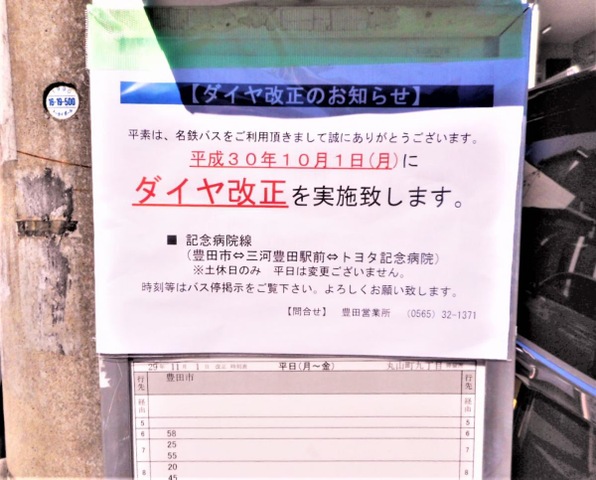 【ダイヤ改正のお知らせ】
16-19-500
平素は、名鉄バスをご利用頂きまして誠にありがとうございます。
平成30年10月1日(月)に
ダイヤ改正を実施致します。
■ 記念病院線
(豊田市⇔三河豊田駅前⇔トヨタ記念病院)
※土休日のみ 平日は変更ございません。
時刻等はバス停掲示をご覧下さい。よろしくお願い致します。
【問合せ】 豊田営業所 (0565) 32-1371
29年 11月 1日 改正 時刻表 平日(月~金) 丸山町九丁目
行先 豊田市 行先
経由 経由
5 5
6 58 6
7 25 7
55
8 20 8
45